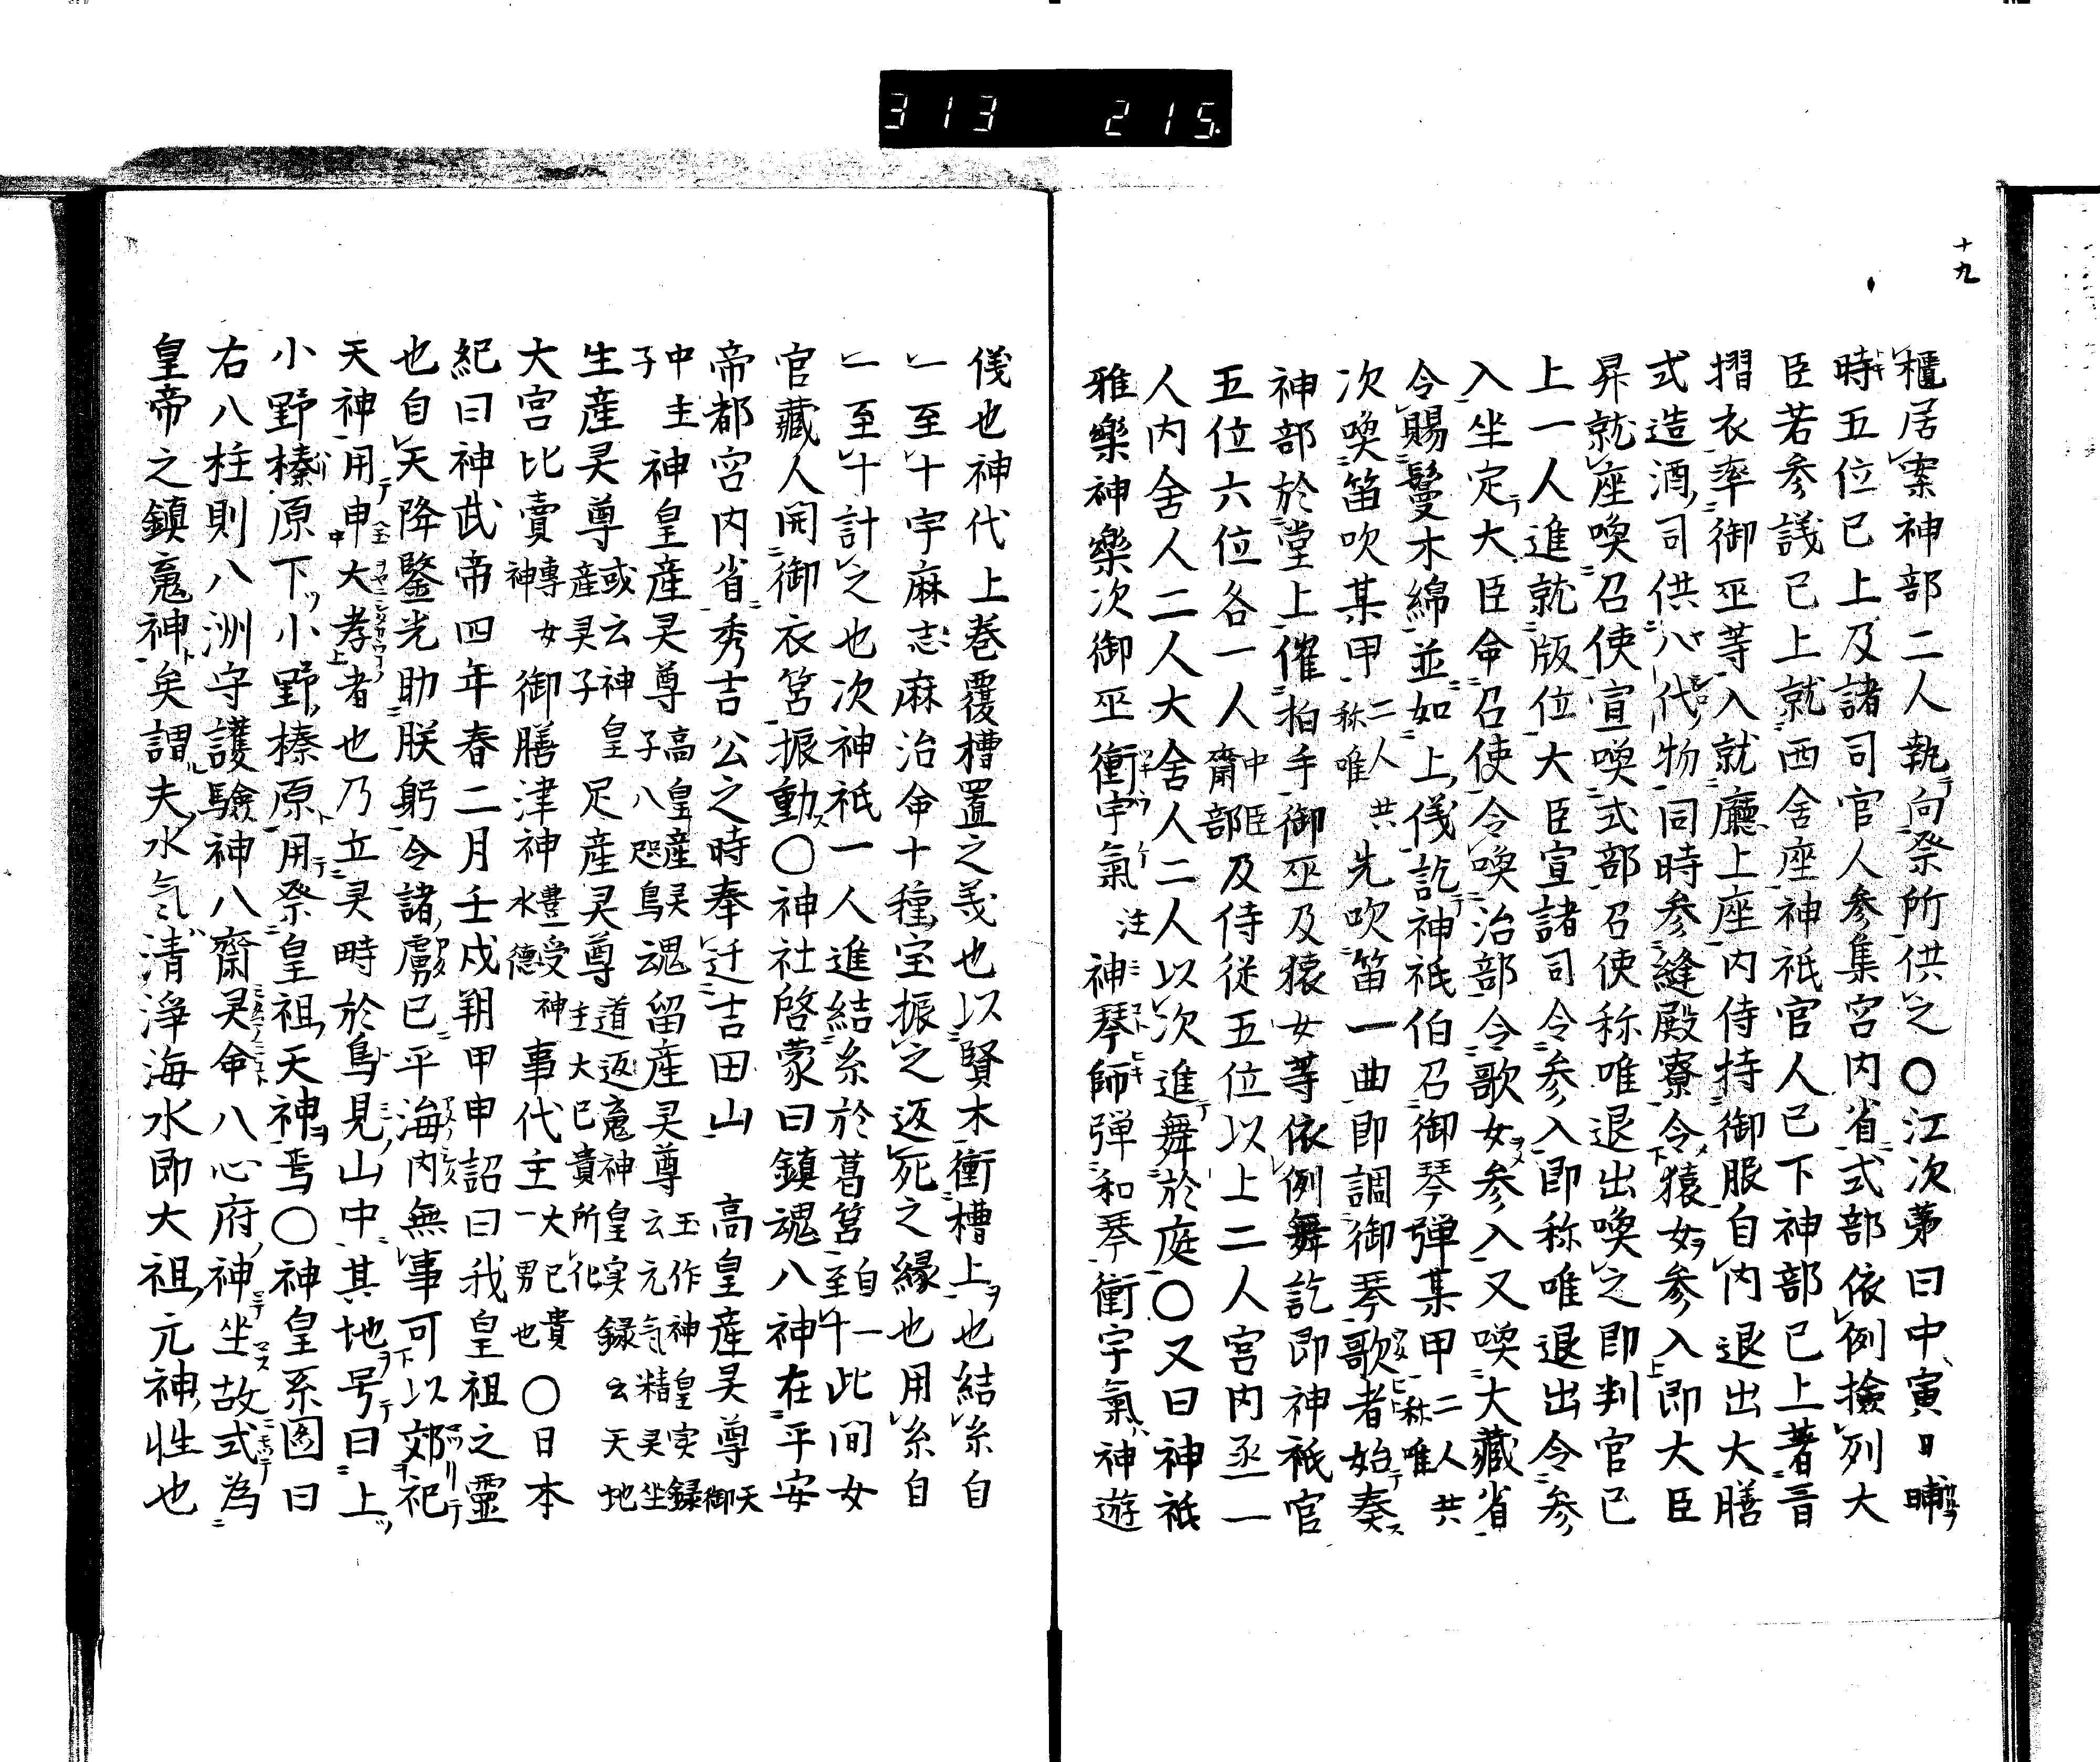 313 215.
十九
櫃居案神部二人執向祭所供之〇江次第曰中寅日晡
時五位已上及諸司官人參集宮内省式部依例撿列大
臣若參議已上就西舍座神祇官人已下神部已上著青
摺衣率御巫等入就廳上座内侍持御服自内退出大膳
式造酒司供八代物同時參縫殿寮令猿女參入即大臣
昇就座喚召使宣喚式部召使称唯退出喚之即判官已
上一人進就版位大臣宣諸司令參入即称唯退出令參
入坐定大臣命召使令喚治部令歌女參入又喚大藏省
令賜鬘木綿並如上儀訖神祇伯召御琴弾某甲二人共称唯
次喚笛吹某甲二人共称唯先吹笛一曲即調御琴歌者始奏
神部於堂上催拍手御巫及猿女等依例舞訖即神祇官
五位六位各一人中臣齋部及侍従五位以上二人宮内丞一
人内舍人二人大舍人二人以次進舞於庭〇又曰神祇
雅樂神樂次御巫衝宇氣注神琴師弾和琴衝宇氣神遊
儀也神代上巻覆槽置之義也以賢木衝槽上也結糸自
一至十宇麻志麻治命十種宝振之返死之縁也用糸自
一至十計之也次神祇一人進結糸於葛筥自一至十此間女
官藏人開御衣筥振動〇神社啓蒙曰鎮魂八神在平安
帝都宮内省秀吉公之時奉迁吉田山 高皇産㚑尊天御
中主子神皇産㚑尊高皇産㚑子八咫烏魂留産㚑尊玉作神皇実録云元气精㚑坐
生産㚑尊或云神皇産㚑子子足産㚑尊道返魂神皇実録云天地主大已貴所化
大宮比賣神專女御膳津神豊受水德神事代主大已貴一男也〇日本
紀曰神武帝四年春二月壬戌朔甲申詔曰我皇祖之靈
也自天降鑒光助朕躬令諸虜已平海内無事可以郊祀
天神用申大孝者也乃立㚑畤於鳥見山中其地号曰上
小野榛原下小野榛原用祭皇祖天神焉〇神皇系图曰
右八柱則八洲守護驗神八齋㚑命八心府神坐故式為
皇帝之鎮魂神矣謂夫水气清淨海水即大祖元神性也